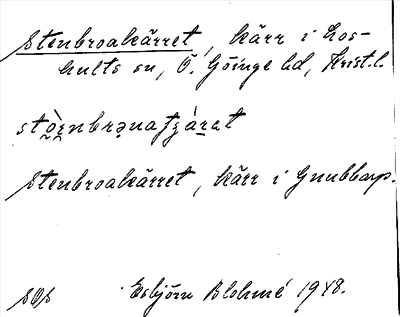 Stenbroakärret, kärr i Los-
hults sn, Ö. Göinge hd, Krist.l.
Stenbroakärret, kärr i Gnubbarp.
SOS Esbjörn Blohmé 1948.